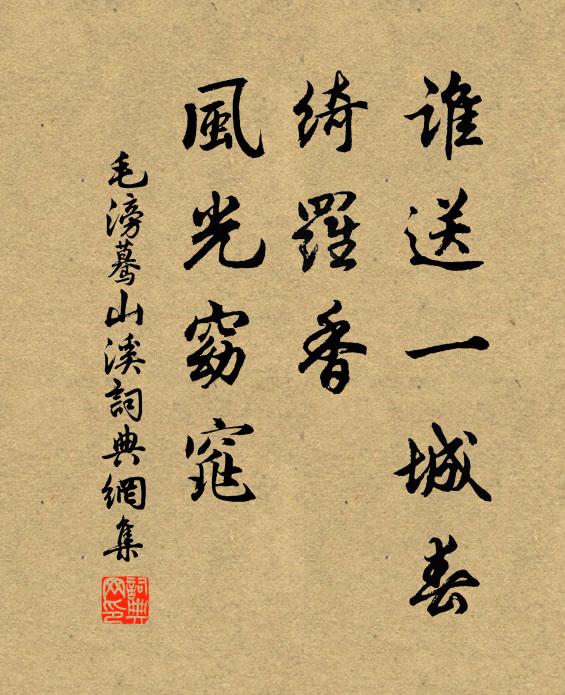 誰送一城春
綺羅香
風光窈窕
毛滂驀山溪詞典網集
詞典网印